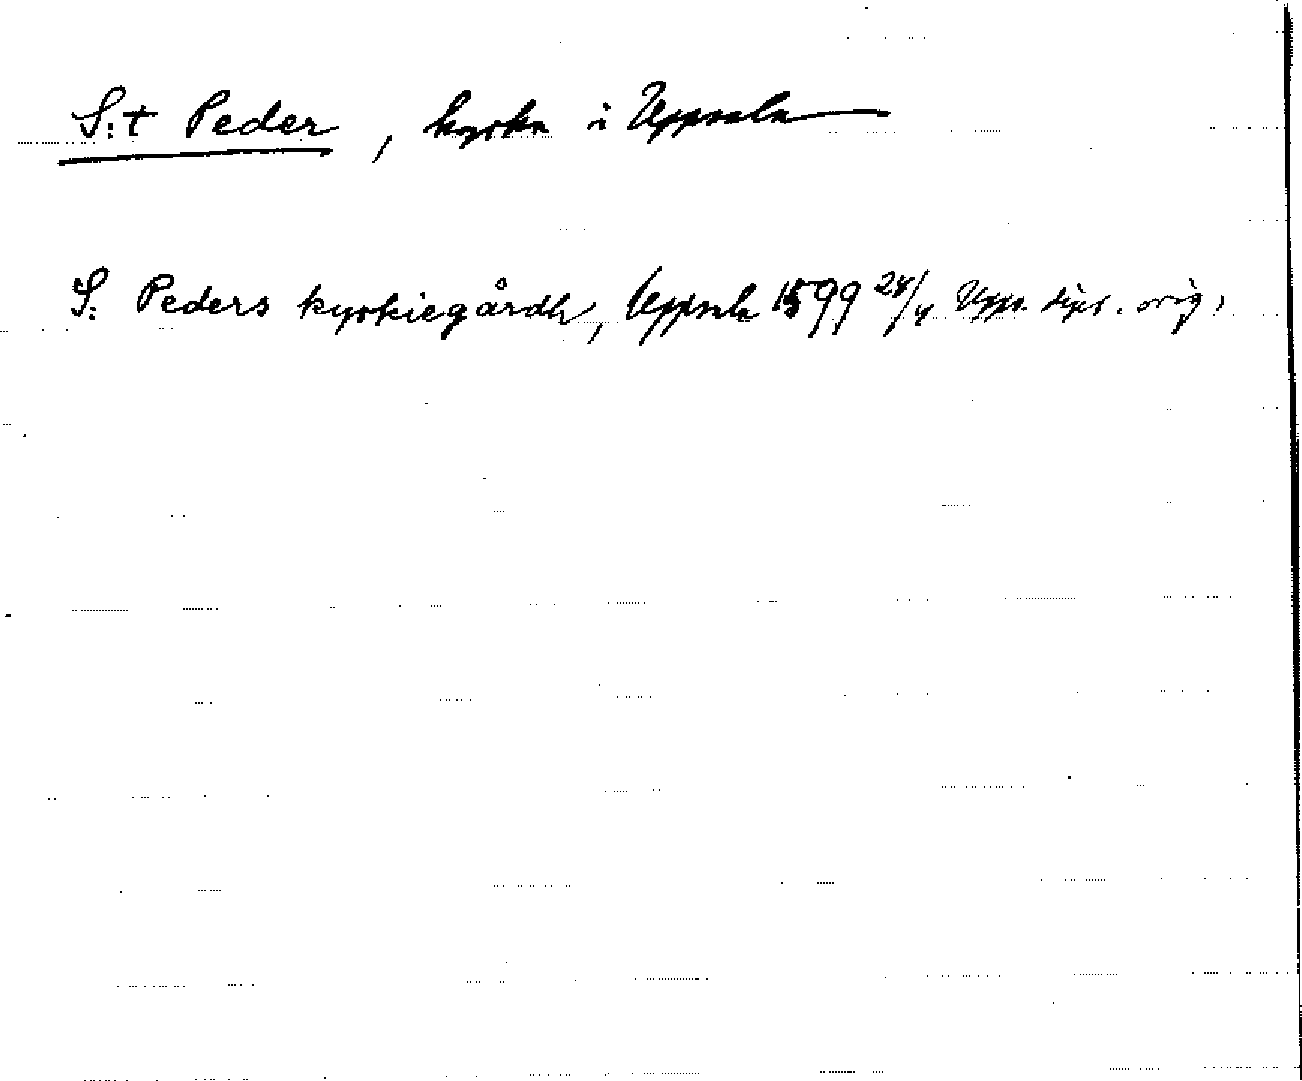 S:t Peder, kyrka i Uppsala
S: Peders kyrkiegårdh, Uppsala 1599 24/4 Upps. orig.